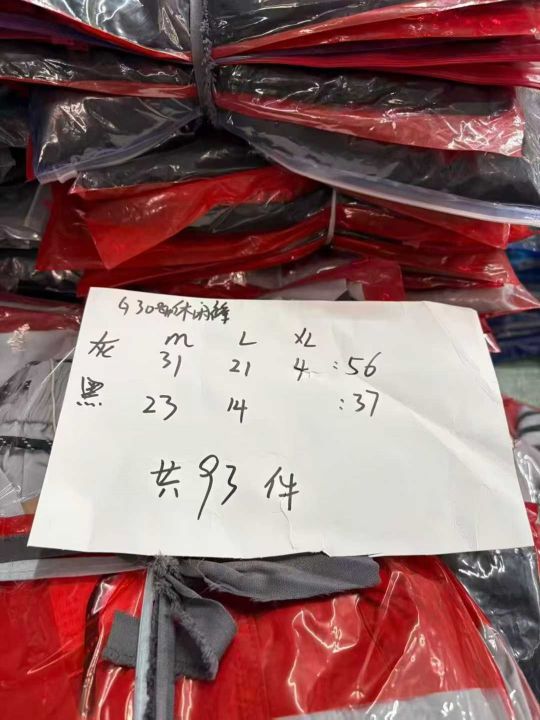 休闲裤
灰 M 31 L 21 XL 4 :56
黑 23 14 :37
共93件